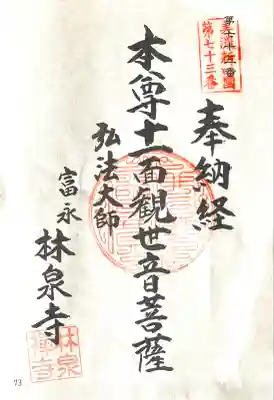 第七十三番
奉納経
本尊十一面觀世音菩薩
弘法大師
富永
林泉寺
林泉
禅寺
73